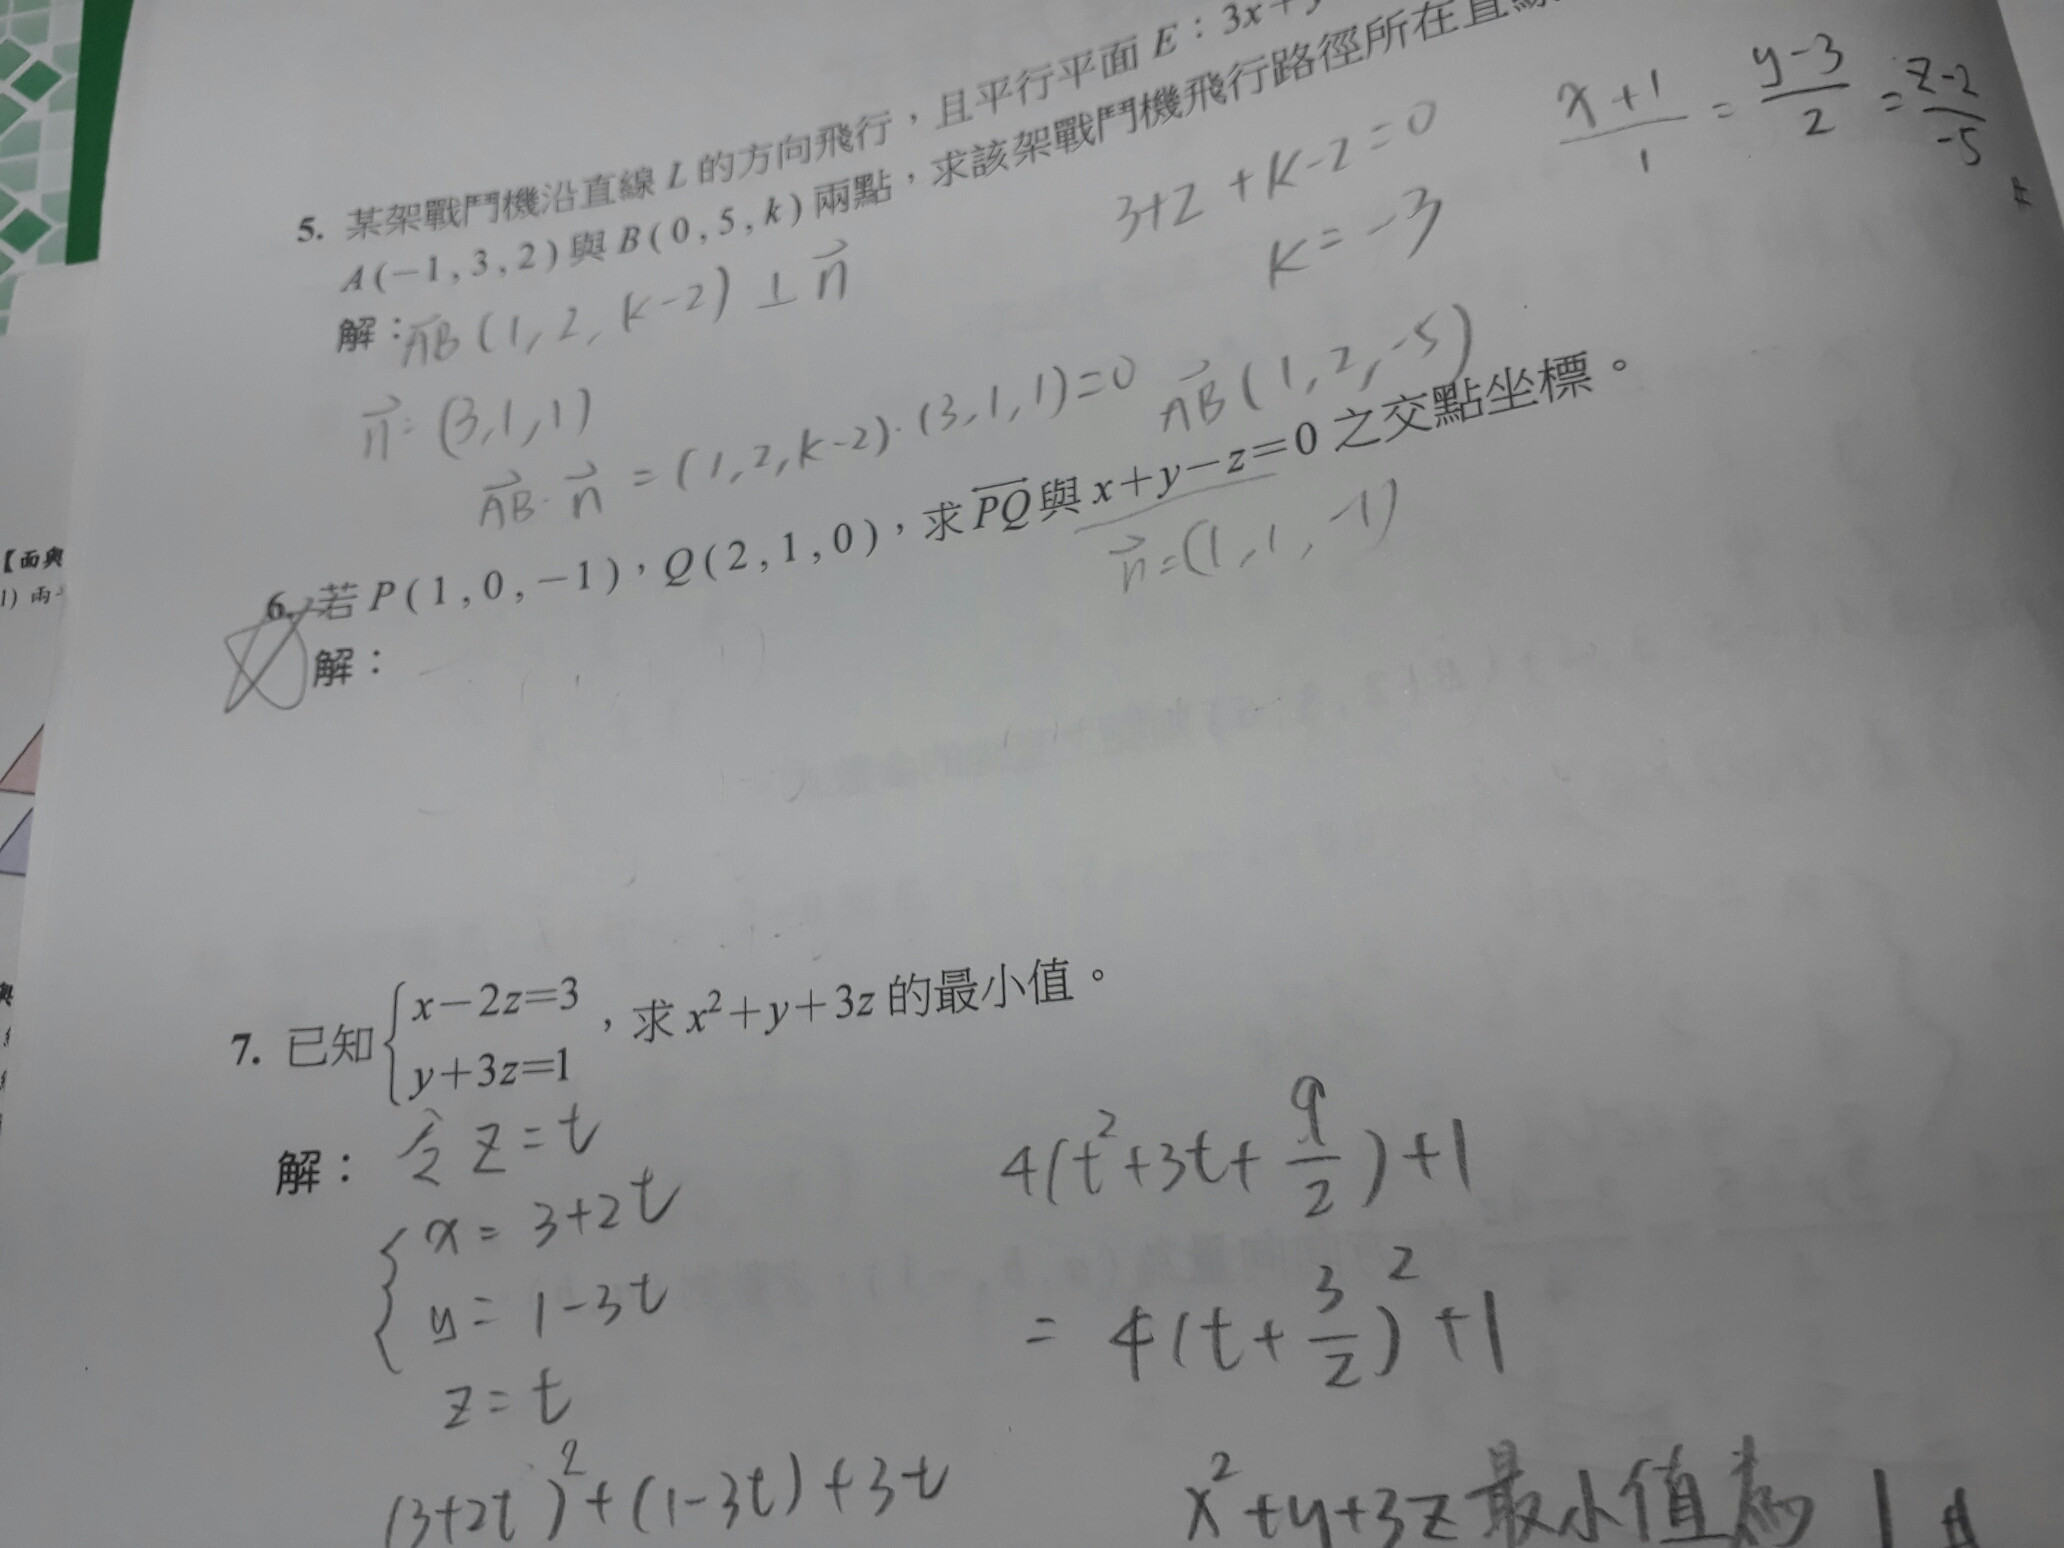 5. 某架戰鬥機沿直線 L 的方向飛行，且平行平面 E：3x+y
A(−1,3,2)與B(0,5,k)兩點，求該架戰鬥機飛行路徑所在直線
解：AB (1,2,k-2) ⊥ n
n = (3,1,1)
AB · n = (1,2,k-2)·(3,1,1)=0
3+2+k-2=0
k=-3
AB (1,2,-5)
x+1/1 = y-3/2 = z-2/-5
6. 若P(1,0,−1)，Q(2,1,0)，求PQ與x+y−z=0之交點坐標。
n=(1,1,-1)
解：
7. 已知{x−2z=3, y+3z=1，求x²+y+3z的最小值。
解：令 z=t
x=3+2t
y=1-3t
z=t
(3+2t)²+(1-3t)+3t
4(t²+3t+9/2)+1
=4(t+3/2)²+1
x²+y+3z最小值為1
【面與